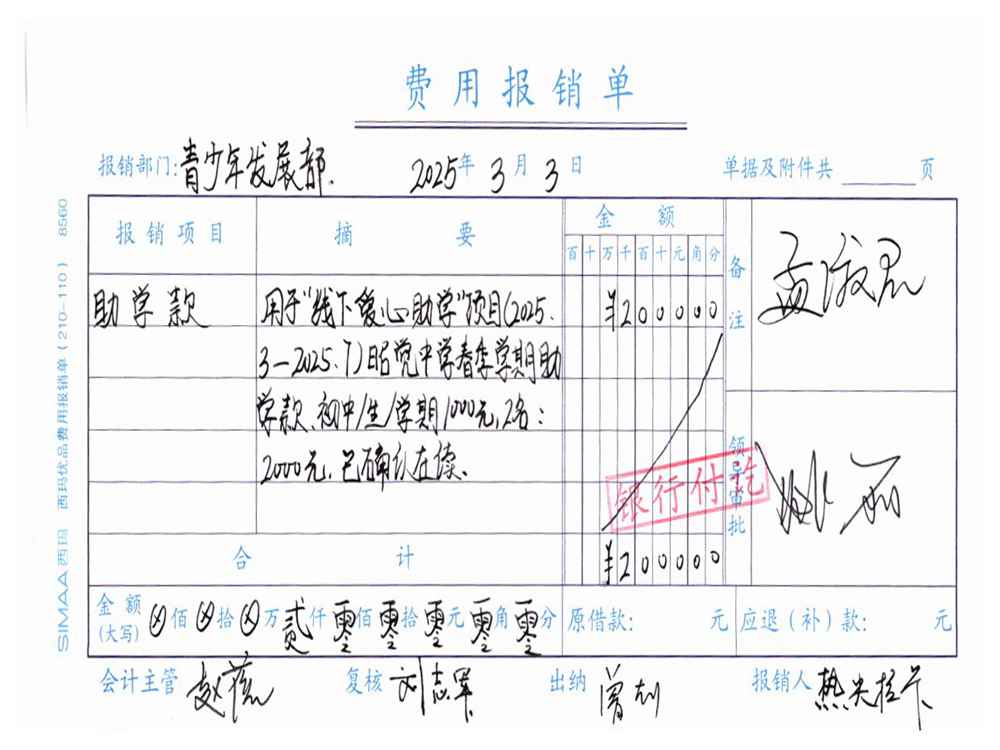 费用报销单
报销部门：青少年发展部. 2025年3月3日 单据及附件共 页
报销项目 摘要 金额 备注
百十万千百十元角分
助学款 用于“线下爱心助学”项目(2025. ¥200000
3—2025.7)昭觉中学春季学期助
学款、初中/生/学期1000元,2名：
2000元,已确认在读.
领导审批
银行付讫
合计 ¥200000
金额(大写) ⊗佰⊗拾⊗万贰仟零佰零拾零元零角零分 原借款： 元 应退（补）款： 元
会计主管 复核 刘志军 出纳 报销人
SIMAA 西玛 西玛优品费用报销单（210-110） 8560